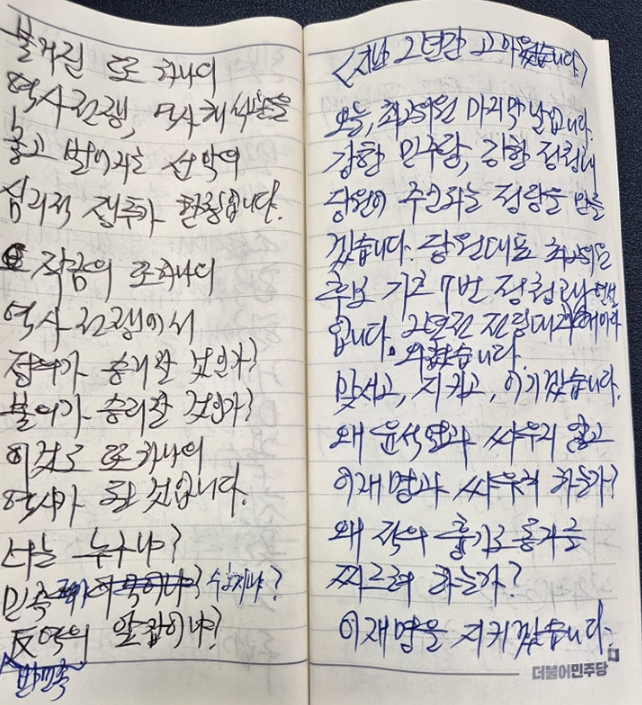 불거질 또 하나의
역사전쟁, 역사해석권을
놓고 벌어지는 선악의
심리적 쟁투가 한창입니다.
작금의 또 하나의
역사 전쟁에서
정의가 승리할 것인가?
불의가 승리할 것인가?
이것도 또 하나의
역사가 될 것입니다.
너는 누구냐?
민족 수호자냐?
反역의 앞잡이냐?
반민족
<지난 2년간 고마웠습니다>
오늘, 최고위원 마지막 날입니다.
강한 민주당, 강한 정청래
당원이 주인되는 정당을 만들
겠습니다. 당원대표 최고위원
후보 기호 7번 정청래
입니다. 2년전 전당대회때 이라
외쳤습니다.
맞서고, 지키고, 이기겠습니다.
왜 윤석열과 싸우지 않고
이재명과 싸우려 하는가?
왜 적의 흉기로 동지를
찌르려 하는가?
이재명을 지키겠습니다.
더불어민주당